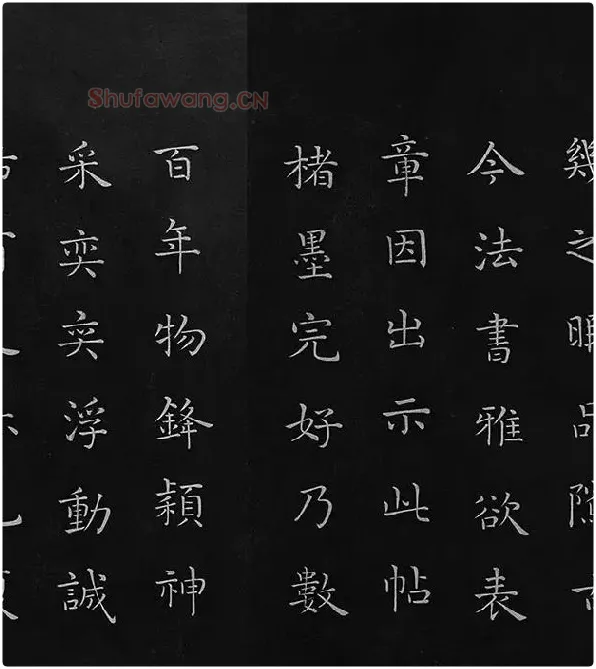 Shufawang.CN
幾之暇品
今法書雅欲表
章因出示此帖
楮墨完好乃數
百年物鋒頴神
采奕奕浮動誠